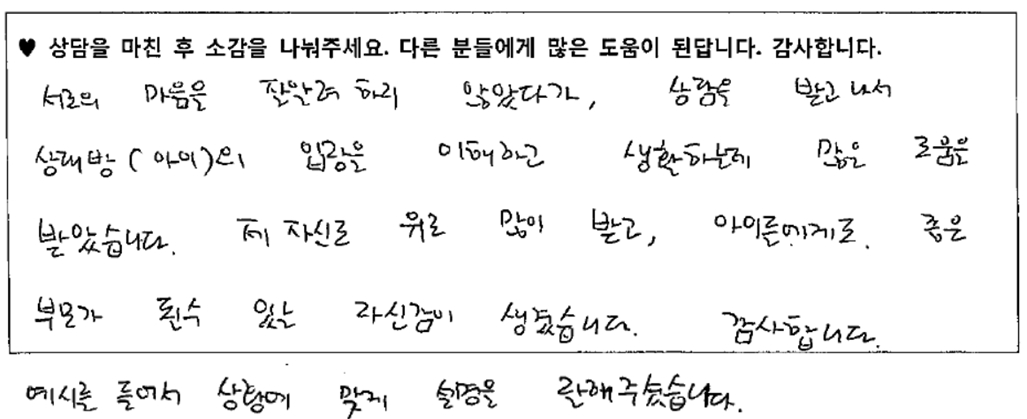 ♥ 상담을 마친 후 소감을 나눠주세요. 다른 분들에게 많은 도움이 된답니다. 감사합니다.
서로의 마음을 잘알려 하리 않았다가, 상담을 받고 나서
상대방(아이)의 입장을 이해하고 생활하는데 많은 도움을
받았습니다. 저 자신도 위로 많이 받고, 아이들에게도 좋은
부모가 될수 있는 자신감이 생겼습니다. 감사합니다.
예시를 들어서 상황에 맞게 설명을 잘해주셨습니다.